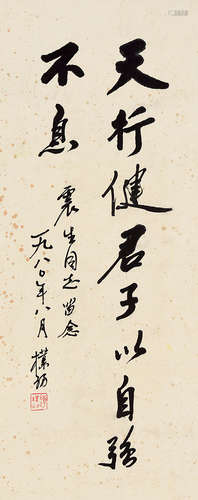 天行健君子以自强
不息
震生同志留念
一九八〇年八月
朴初